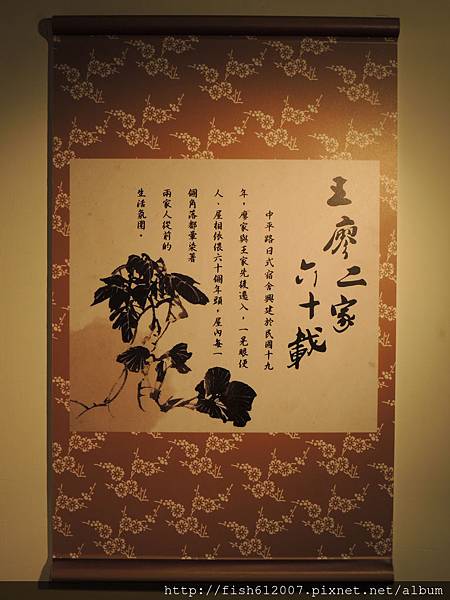 王廖二家
六十載
中平路日式宿舍興建於民國十九
年，廖家與王家先後遷入，一晃眼便
人、屋相依偎六十個年頭，屋內每一
個角落都暈染著
兩家人從前的
生活氛圍。
http://fish612007.pixnet.net/album